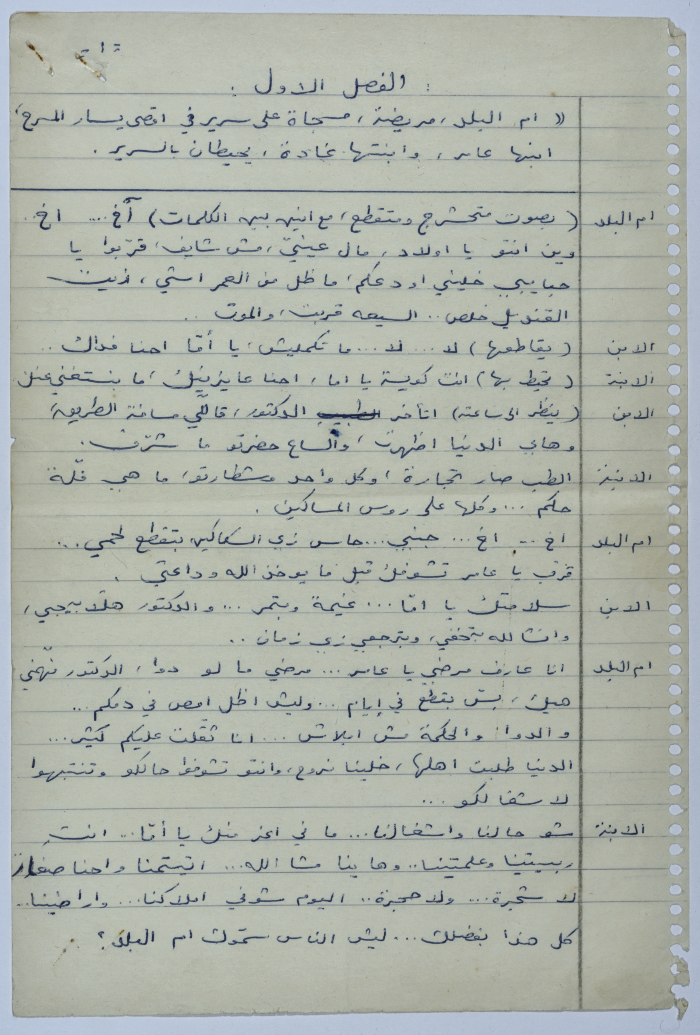 - ١ -
: الفصل الاول :
(( ام البلد، مريضة، مسجاة على سرير في اقصى يسار المسرح،
ابنها عامر، وابنتها غادة، يحيطان بالسرير.
ام البلد (بصوت متحشرج ومتقطع، مع انين بين الكلمات) آخ... اخ..
وين انتو يا اولاد، مال عينيّ، مش شايف، قرّبوا يا
حبايبي خليني اودعكم، ما ظل من العمر اشي، زيت
القنديل خلص.. السيعه قربت، والموت..
الابن (يقاطعها) لا... لا... ما تكمليش، يا أمّا احنا فداك..
الابنة (تحيط بها) انت كويسة يا اما، احنا عايزينك، ما بنستغني عنك
الابن (ينظر الى ساعته) اتأخر الطبيب الدكتور، قاللي مسافة الطريق،
وهاي الدنيا اظهرت، والساع حضرتو ما شرّف.
الابنة الطب صار تجارة، وكل واحد وشطارتو، ما هي قلّة
حكم... وكلها على روس المساكين.
ام البلد اخ... اخ... جنبي... حاس زي السكاكين بتقطع لحمي...
قرّب يا عامر تشوفك قبل ما يوخذ الله وداعتي.
الابن سلامتك يا امّا... غيمة وبتمر... والدكتور هلّا بييجي،
وانشالله بتخفي، وبترجعي زي زمان..
ام البلد انا عارف مرضي يا عامر... مرضي ما لو دوا، الدكتور فهّمني
هيك، بس بقطع في إيام... وليش اظل امص في دمكم...
والدوا والحكمة مش ابلاش... انا ثقّلت عليكم كثير...
الدنيا طلبت اهلها، خلينا نروح، وانتو تشوفوا حالكو وتنتبهوا
لاشغالكو...
الابنة شو حالنا واشغالنا... ما في اعز منك يا أمّا.. انتِ
ربيتينا وعلمتينا.. وهاينا مشا الله... اتيتمنا واحنا صغار
لا شجرة... ولا حجرة.. اليوم شوفي املاكنا... واراضينا..
كل هذا بفضلك... ليش الناس سمّوك ام البلد؟..